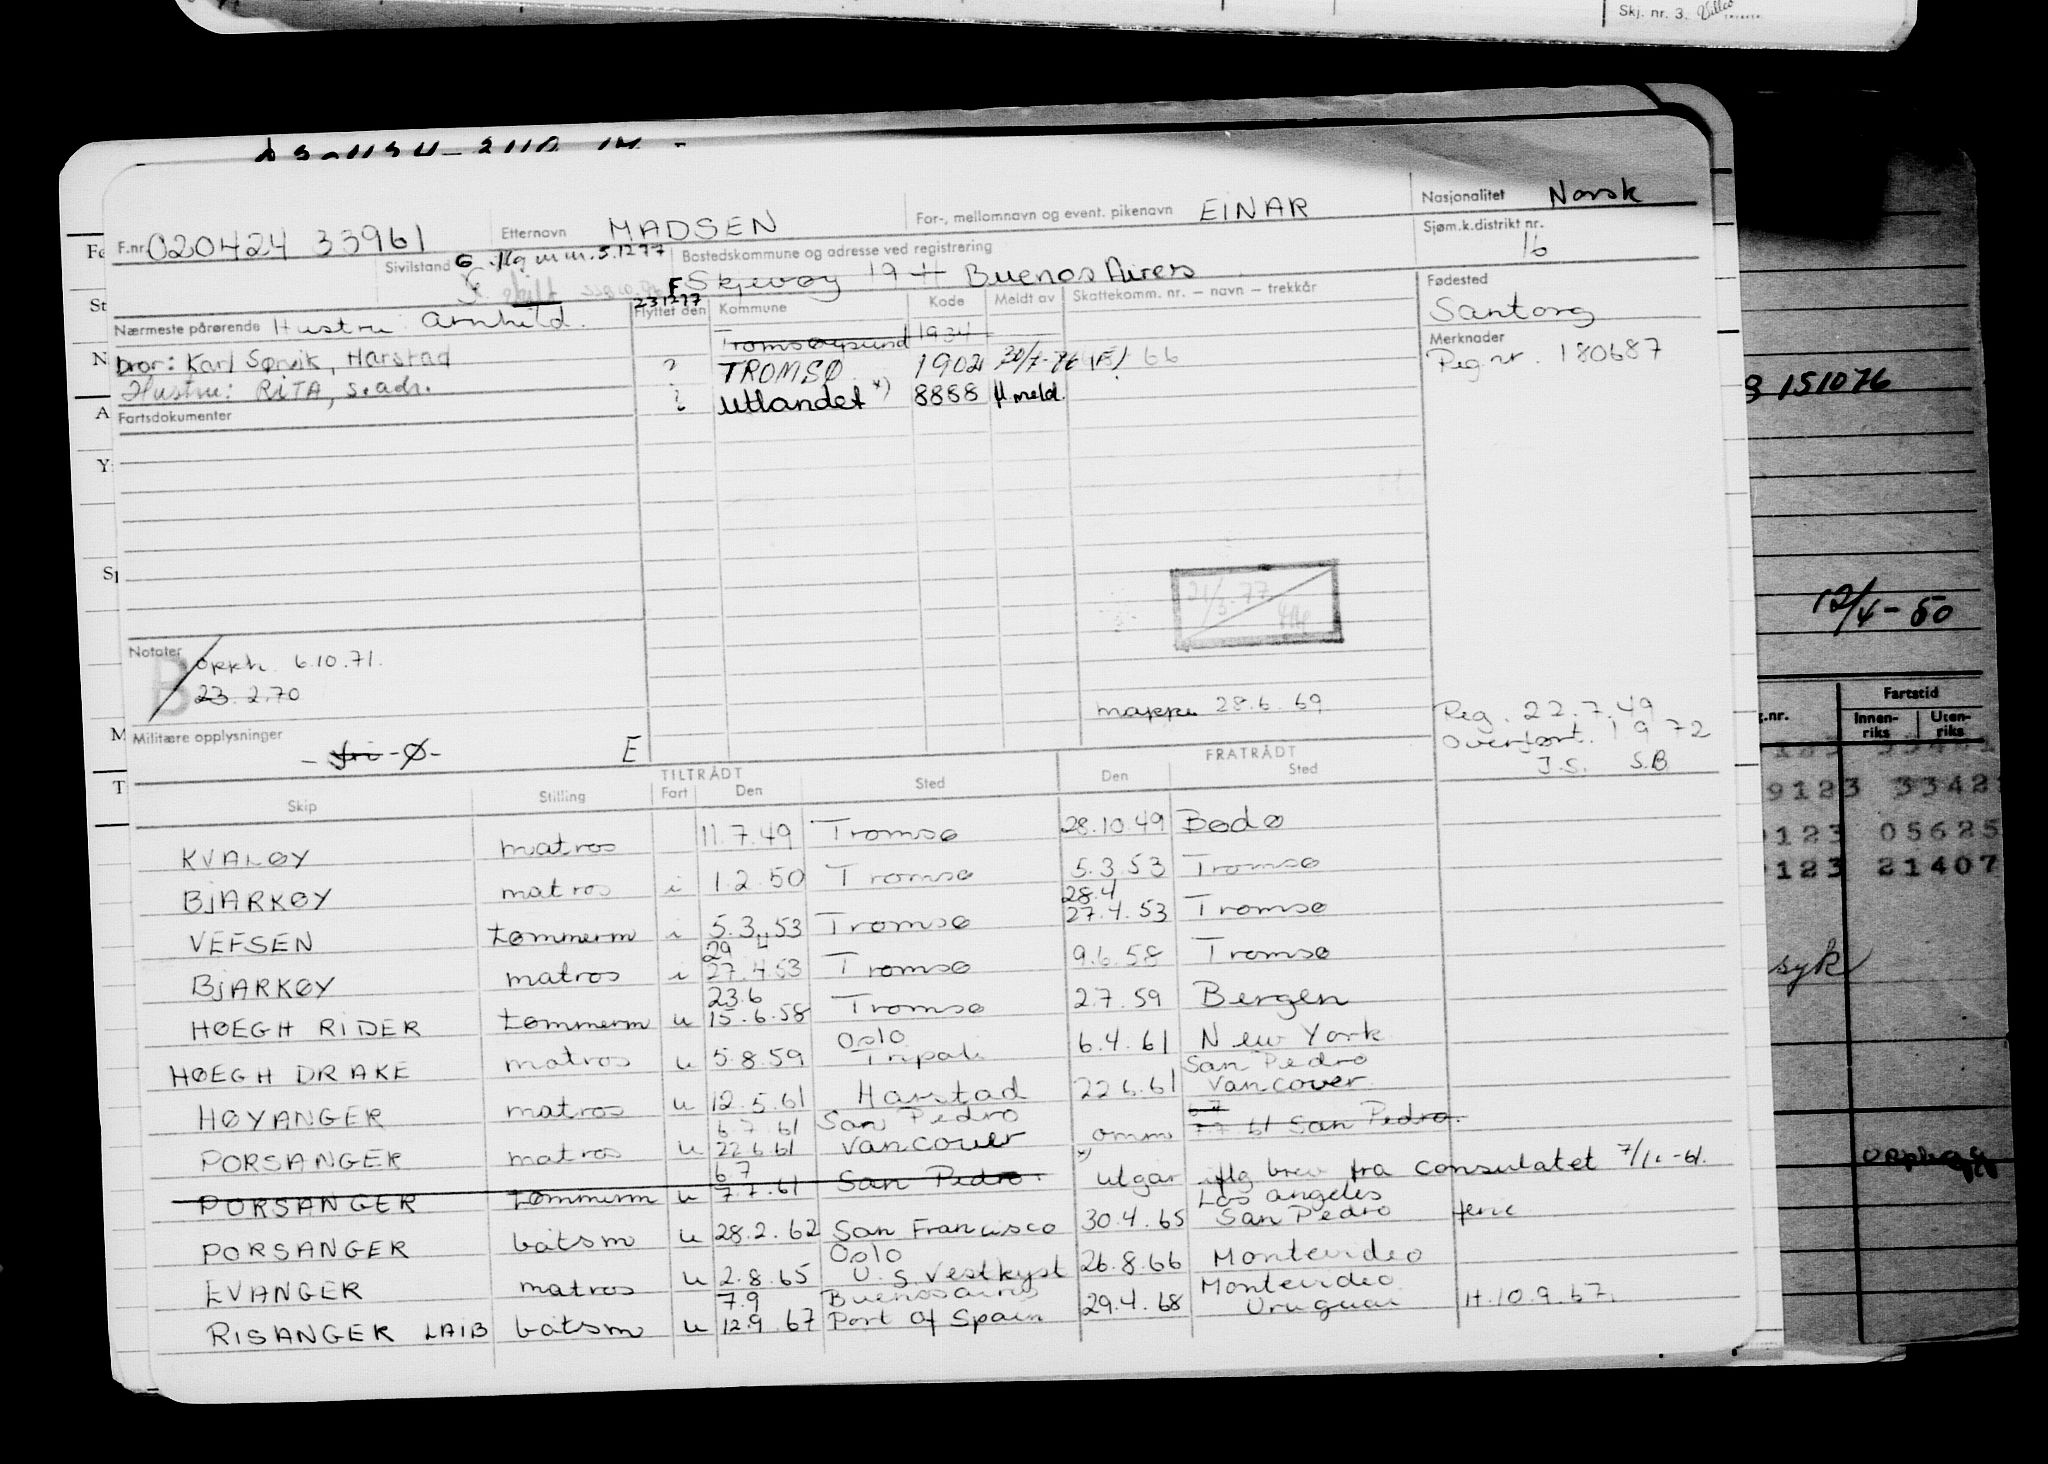 Skj. nr. 3.
F.nr. 020424 33961 Etternavn MADSEN For-, mellomnavn og event. pikenavn EINAR Nasjonalitet Norsk
Sivilstand G iflg m.m. 5.1277 Bostedskommune og adresse ved registrering Sjøm.k.distrikt nr. 16
skilt F Skjervøy 19 Buenos Aires Fødested
Santorg
Nærmeste pårørende Hustru: Arnhild. 231277 Flyttet den Kommune Kode Meldt av Skattekomm. nr. – navn – trekkår
Tromsøysund 1934 Merknader
bror: Karl Sørvik, Harstad ? TROMSØ 1902 30/7-76 (F) 66 Reg.nr. 180687
Hustru: RITA, s.adr. ? Utlandet *) 8888 fl meld.
Fartsdokumenter
3 151076
21/3-77
12/4-50
Notater
B opph. 6.10.71.
23.2.70
mappe 28.6.69
Reg. 22.7.49
Overført. 1972
J.S. S.B
Militære opplysninger
- fri -Ø- E
TILTRÅDT FRATRÅDT
Skip Stilling Fart Den Sted Den Sted
KVALØY matros 11.7.49 Tromsø 28.10.49 Bodø
BJARKØY matros i 1.2.50 Tromsø 5.3.53 Tromsø
28.4
VEFSEN tømmerm i 5.3.53 Tromsø 27.4.53 Tromsø
29 4
BJARKØY matros i 27.4.53 Tromsø 9.6.58 Tromsø
23.6
HØEGH RIDER tømmerm u 15.6.58 Tromsø 2.7.59 Bergen
Oslo
HØEGH DRAKE matros u 5.8.59 Tripoli 6.4.61 New York
San Pedro
HØYANGER matros u 12.5.61 Harstad 22.6.61 Vancover
6.7.61 San Pedro 6.7
PORSANGER matros u 22.6.61 Vancover omm 7.7.61 San Pedro.
6.7 *)
PORSANGER tømmerm u 7.7.61 San Pedro. utgår iflg brev fra Consulatet 7/11-61.
Los Angeles
PORSANGER båtsm u 28.2.62 San Francisco 30.4.65 San Pedro ferie
Oslo
EVANGER matros u 2.8.65 U.S. Vestkyst 26.8.66 Montevideo
7.9 Buenos aires Montevideo
RISANGER LAIB båtsm u 12.9.67 Port of Spain 29.4.68 Uruguai H.10.9.67.
Fartstid
Innen-
riks
Uten-
riks
9123 3342
0123 05625
0123 21407
syk